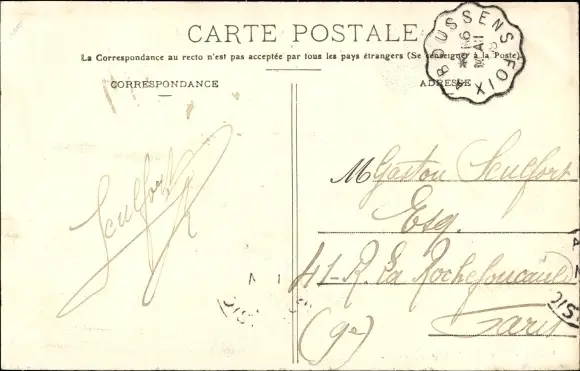 CARTE POSTALE
La Correspondance au recto n'est pas acceptée par tous les pays étrangers (Se renseigner à la Poste)
CORRESPONDANCE
ADRESSE
BOUSSENS
FOIX
MAI
Seulfort
M Gaston Seulfort
Esq.
41-R. La Rochefoucauld
(9e) Paris